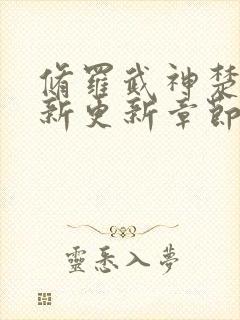 脩羅武神楚
新更新章節
靈悉入夢